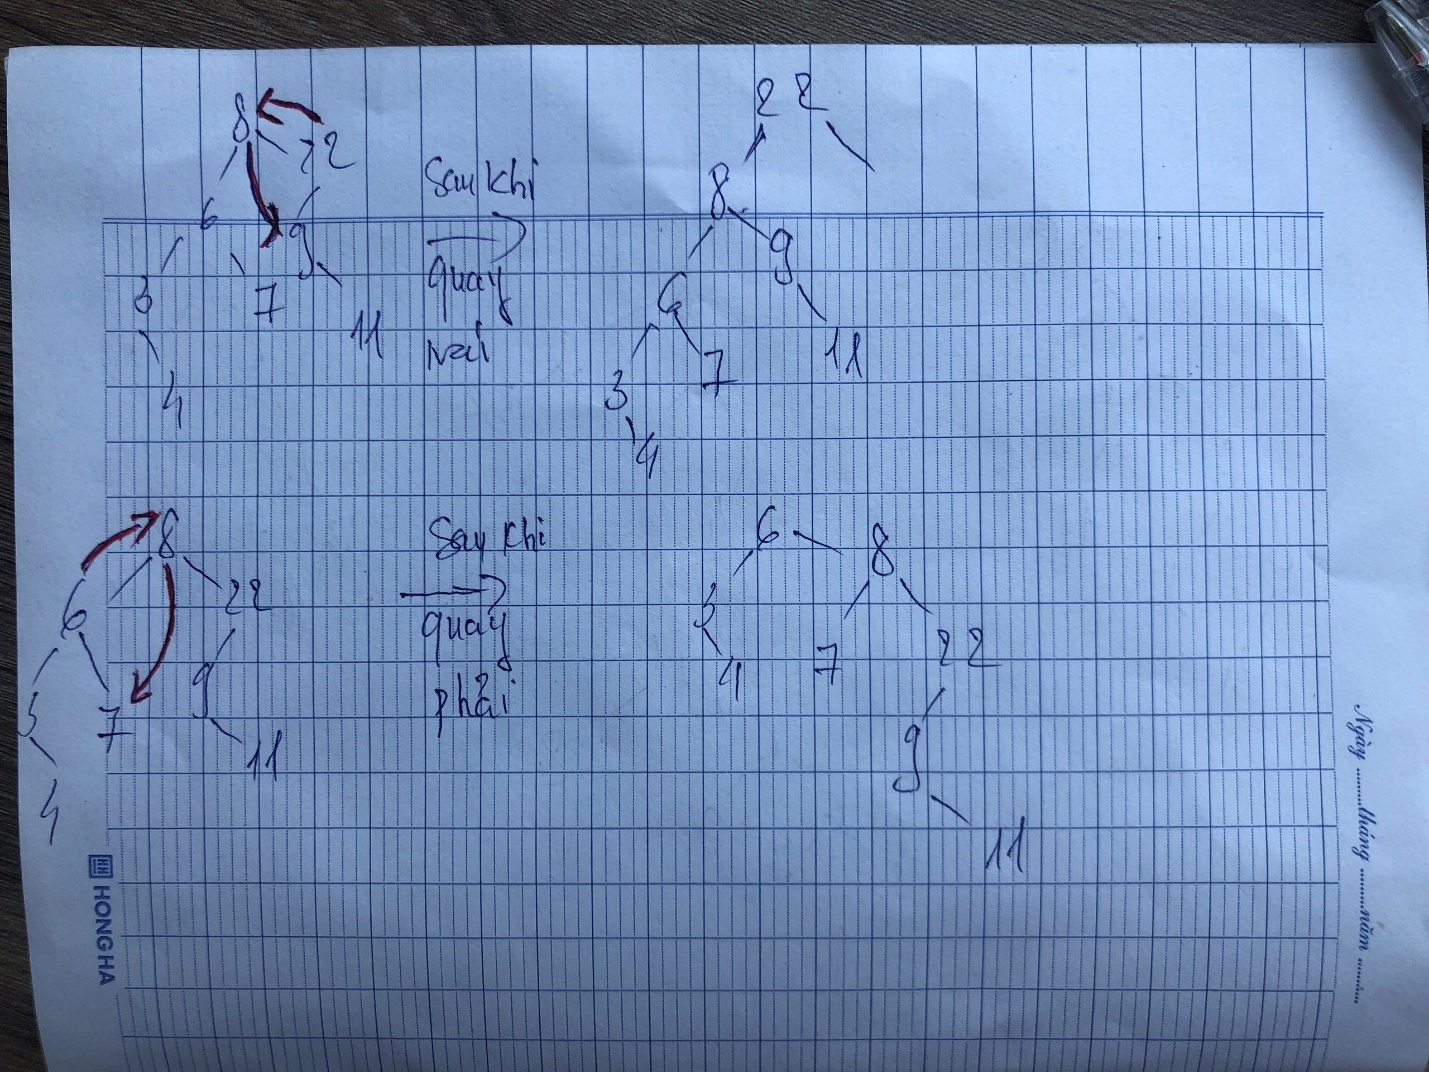 8
22
6
9
3
7
11
4
Sau khi
quay
trái
22
8
9
6
11
7
3
4
8
6
22
3
7
9
11
4
Sau khi
quay
phải
6
8
3
4
7
22
9
11
HONG HA
Ngày ........tháng ........năm ........